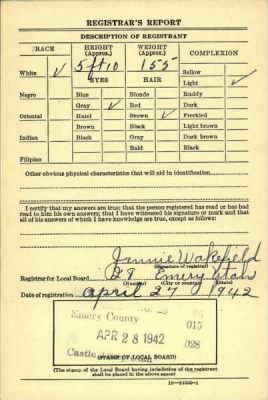 REGISTRAR'S REPORT
DESCRIPTION OF REGISTRANT
RACE HEIGHT (Approx.) WEIGHT (Approx.) COMPLEXION
White ✓ 5 ft 10 155 Sallow
EYES HAIR Light ✓
Negro Blue Blonde Ruddy
Gray ✓ Red Dark
Oriental Hazel Brown ✓ Freckled
Brown Black Light brown
Indian Black Gray Dark brown
Bald Black
Filipino
Other obvious physical characteristics that will aid in identification
I certify that my answers are true; that the person registered has read or has had
read to him his own answers; that I have witnessed his signature or mark and that
all of his answers of which I have knowledge are true, except as follows:
Jennie Wakefield
(Signature of registrar)
Registrar for Local Board 28 Emery Utah
(Number) (City or county) (State)
Date of registration April 27 1942
No. 28
Emery County
015
APR 28 1942
028
Castle
(STAMP OF LOCAL BOARD)
(The stamp of the Local Board having jurisdiction of the registrant
shall be placed in the above space)